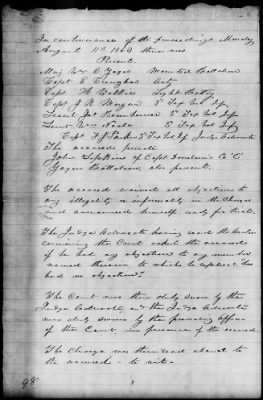 In continuance of the proceedings Monday
August 11th 1863 there was
Present.
Maj Wm O Yager Mounted Battalion
Capt E Creuzbaur Arty
Capt H Willke Light Battery
Capt J R Morgan 3d Tex Vol Inf
Lieut Jas 3d Tex Vol Inf
Lieut Wm 3d Tex Vol Inf
Capt F J Parker 3d Tex Vol Inf Judge Advocate
The accused private
John Hopkins of Capt Co C
Yagers Battalion also present.
The accused waived all objections to
any illegality or informality in the Charges
and announced himself ready for trial.
The Judge Advocate having read the order
convening the Court asked the accused
if he had any objections to any member
named therein to which he replied "he
had no objections".
The Court was then duly sworn by the
Judge Advocate and the Judge Advocate
was duly sworn by the presiding officer
of the Court, in presence of the accused
The Charge was then read aloud to
the accused - to wit -
98